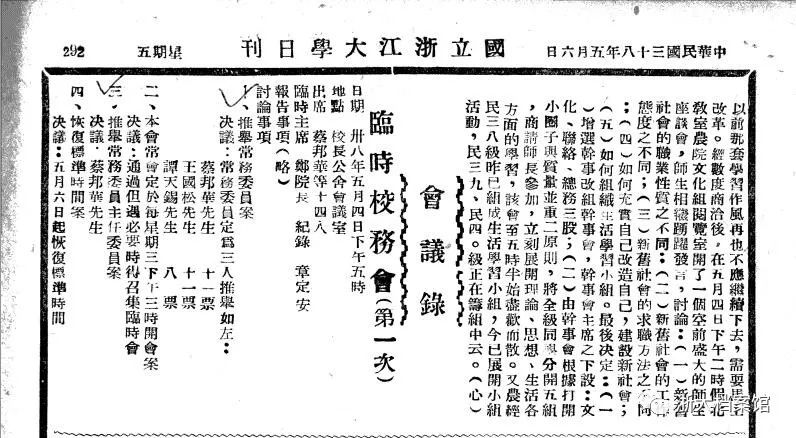 中華民國三十八年五月六日
國立浙江大學日刊
星期五
292
以前那套學習作風再也不應繼續下去,需要
改革。經數度商洽後,在五月四日下午二時假
教室農院文化組閱覽室開了一個空前盛大的師生
座談會,師生相繼踴躍發言,討論:(一)新舊
社會的職業性質之不同;(二)新舊社會的工作
態度之不同;(三)新舊社會的求職方法之不同
;(四)如何充實自己改造自己,建設新社會;
(五)如何組織生活學習小組。最後決定:(一
)增選幹事改組幹事會,幹事會主席之下設:文
化、聯絡、總務三股;(二)由幹事會根據打開
小圈子與質量並重二原則,將全級同學分開五組
,商請師長參加,立刻展開理論、思想、生活各
方面的學習,該會至五時半始盡歡而散。又農經
民三八級昨已組成生活學習小組,今已展開小組
活動,民三九、民四〇級正在籌組中云。(心)
會議錄
臨時校務會(第一次)
日期 卅八年五月四日下午五時
地點 校長公舍會議室
出席 蔡邦華等十四人
臨時主席 鄭院長 紀錄 章定安
報告事項(略)
討論事項
一、推舉常務委員案
決議:常務委員定為三人推舉如左:
蔡邦華先生 十一票
王國松先生 十一票
譚天錫先生 八票
二、本會常會定於每星期三下午三時開會案
決議:通過但遇必要時得召集臨時會
三、推舉常務委員主任委員案
決議:蔡邦華先生
四、恢復標準時間案
決議:五月六日起恢復標準時間
浙大档案馆